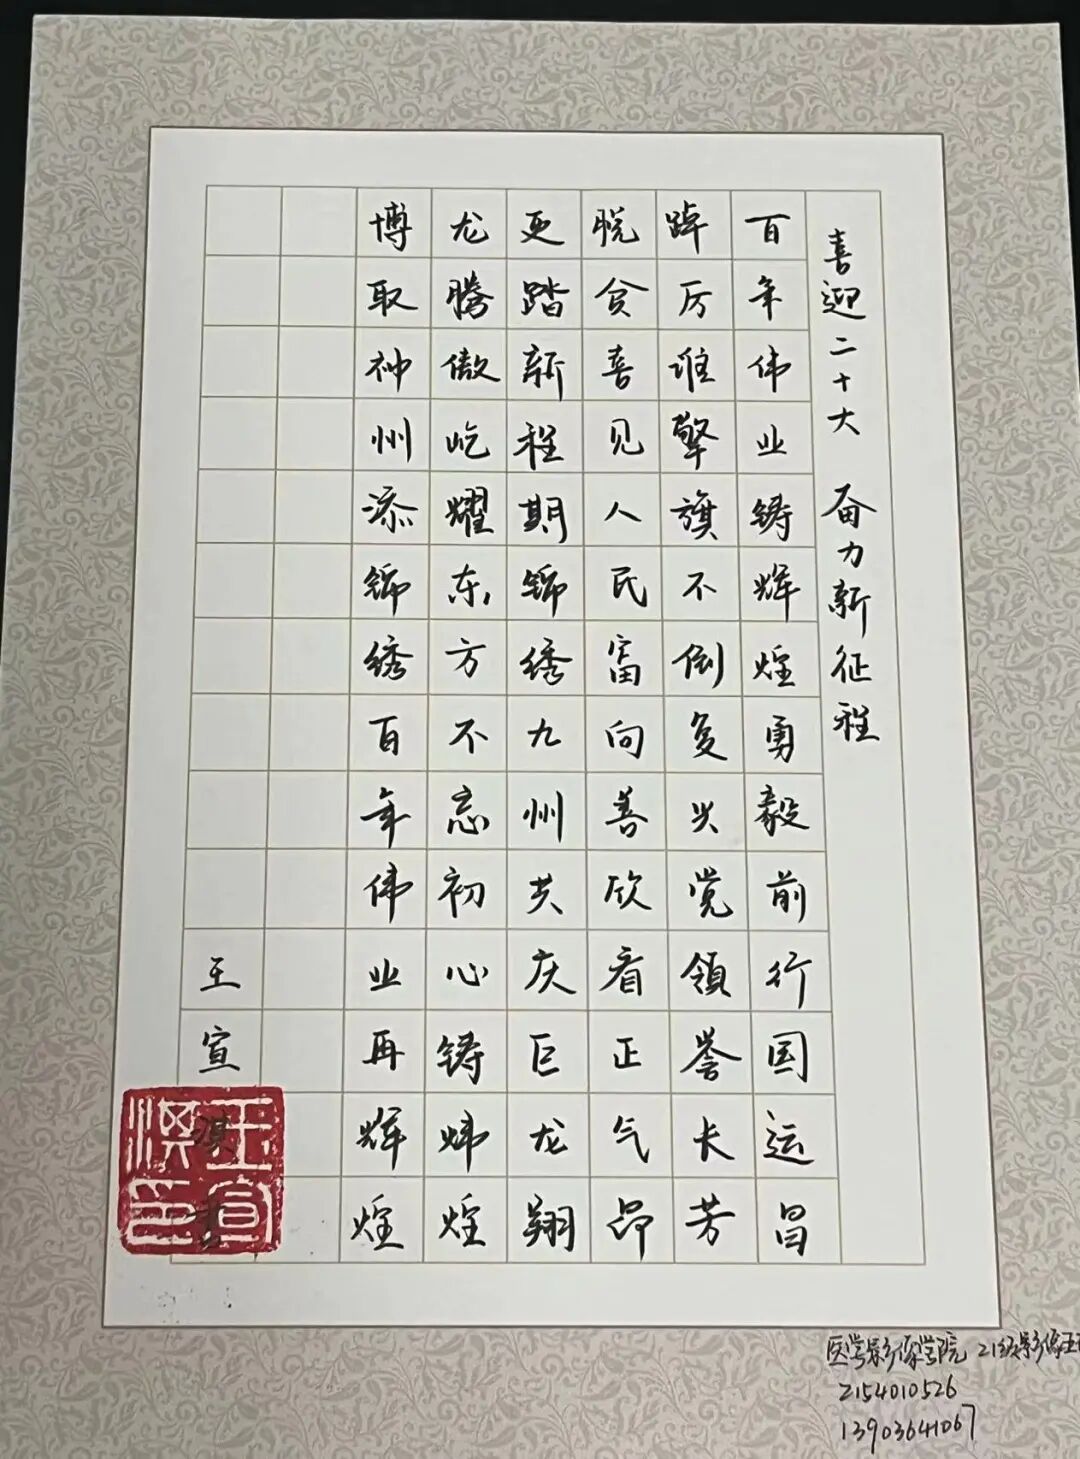 喜迎二十大 奋力新征程
百年伟业铸辉煌勇毅前行国运昌
踔厉谁擎旗不倒复兴党领誉长芳
脱贫喜见人民富向善欣看正气昂
更踏新程期锦绣九州共庆巨龙翔
龙腾傲屹耀东方不忘初心铸炜煌
博取神州添锦绣百年伟业再辉煌
王宣淇书
王宣淇印
医学影像学院 21级影像王
2154010526
13903641067